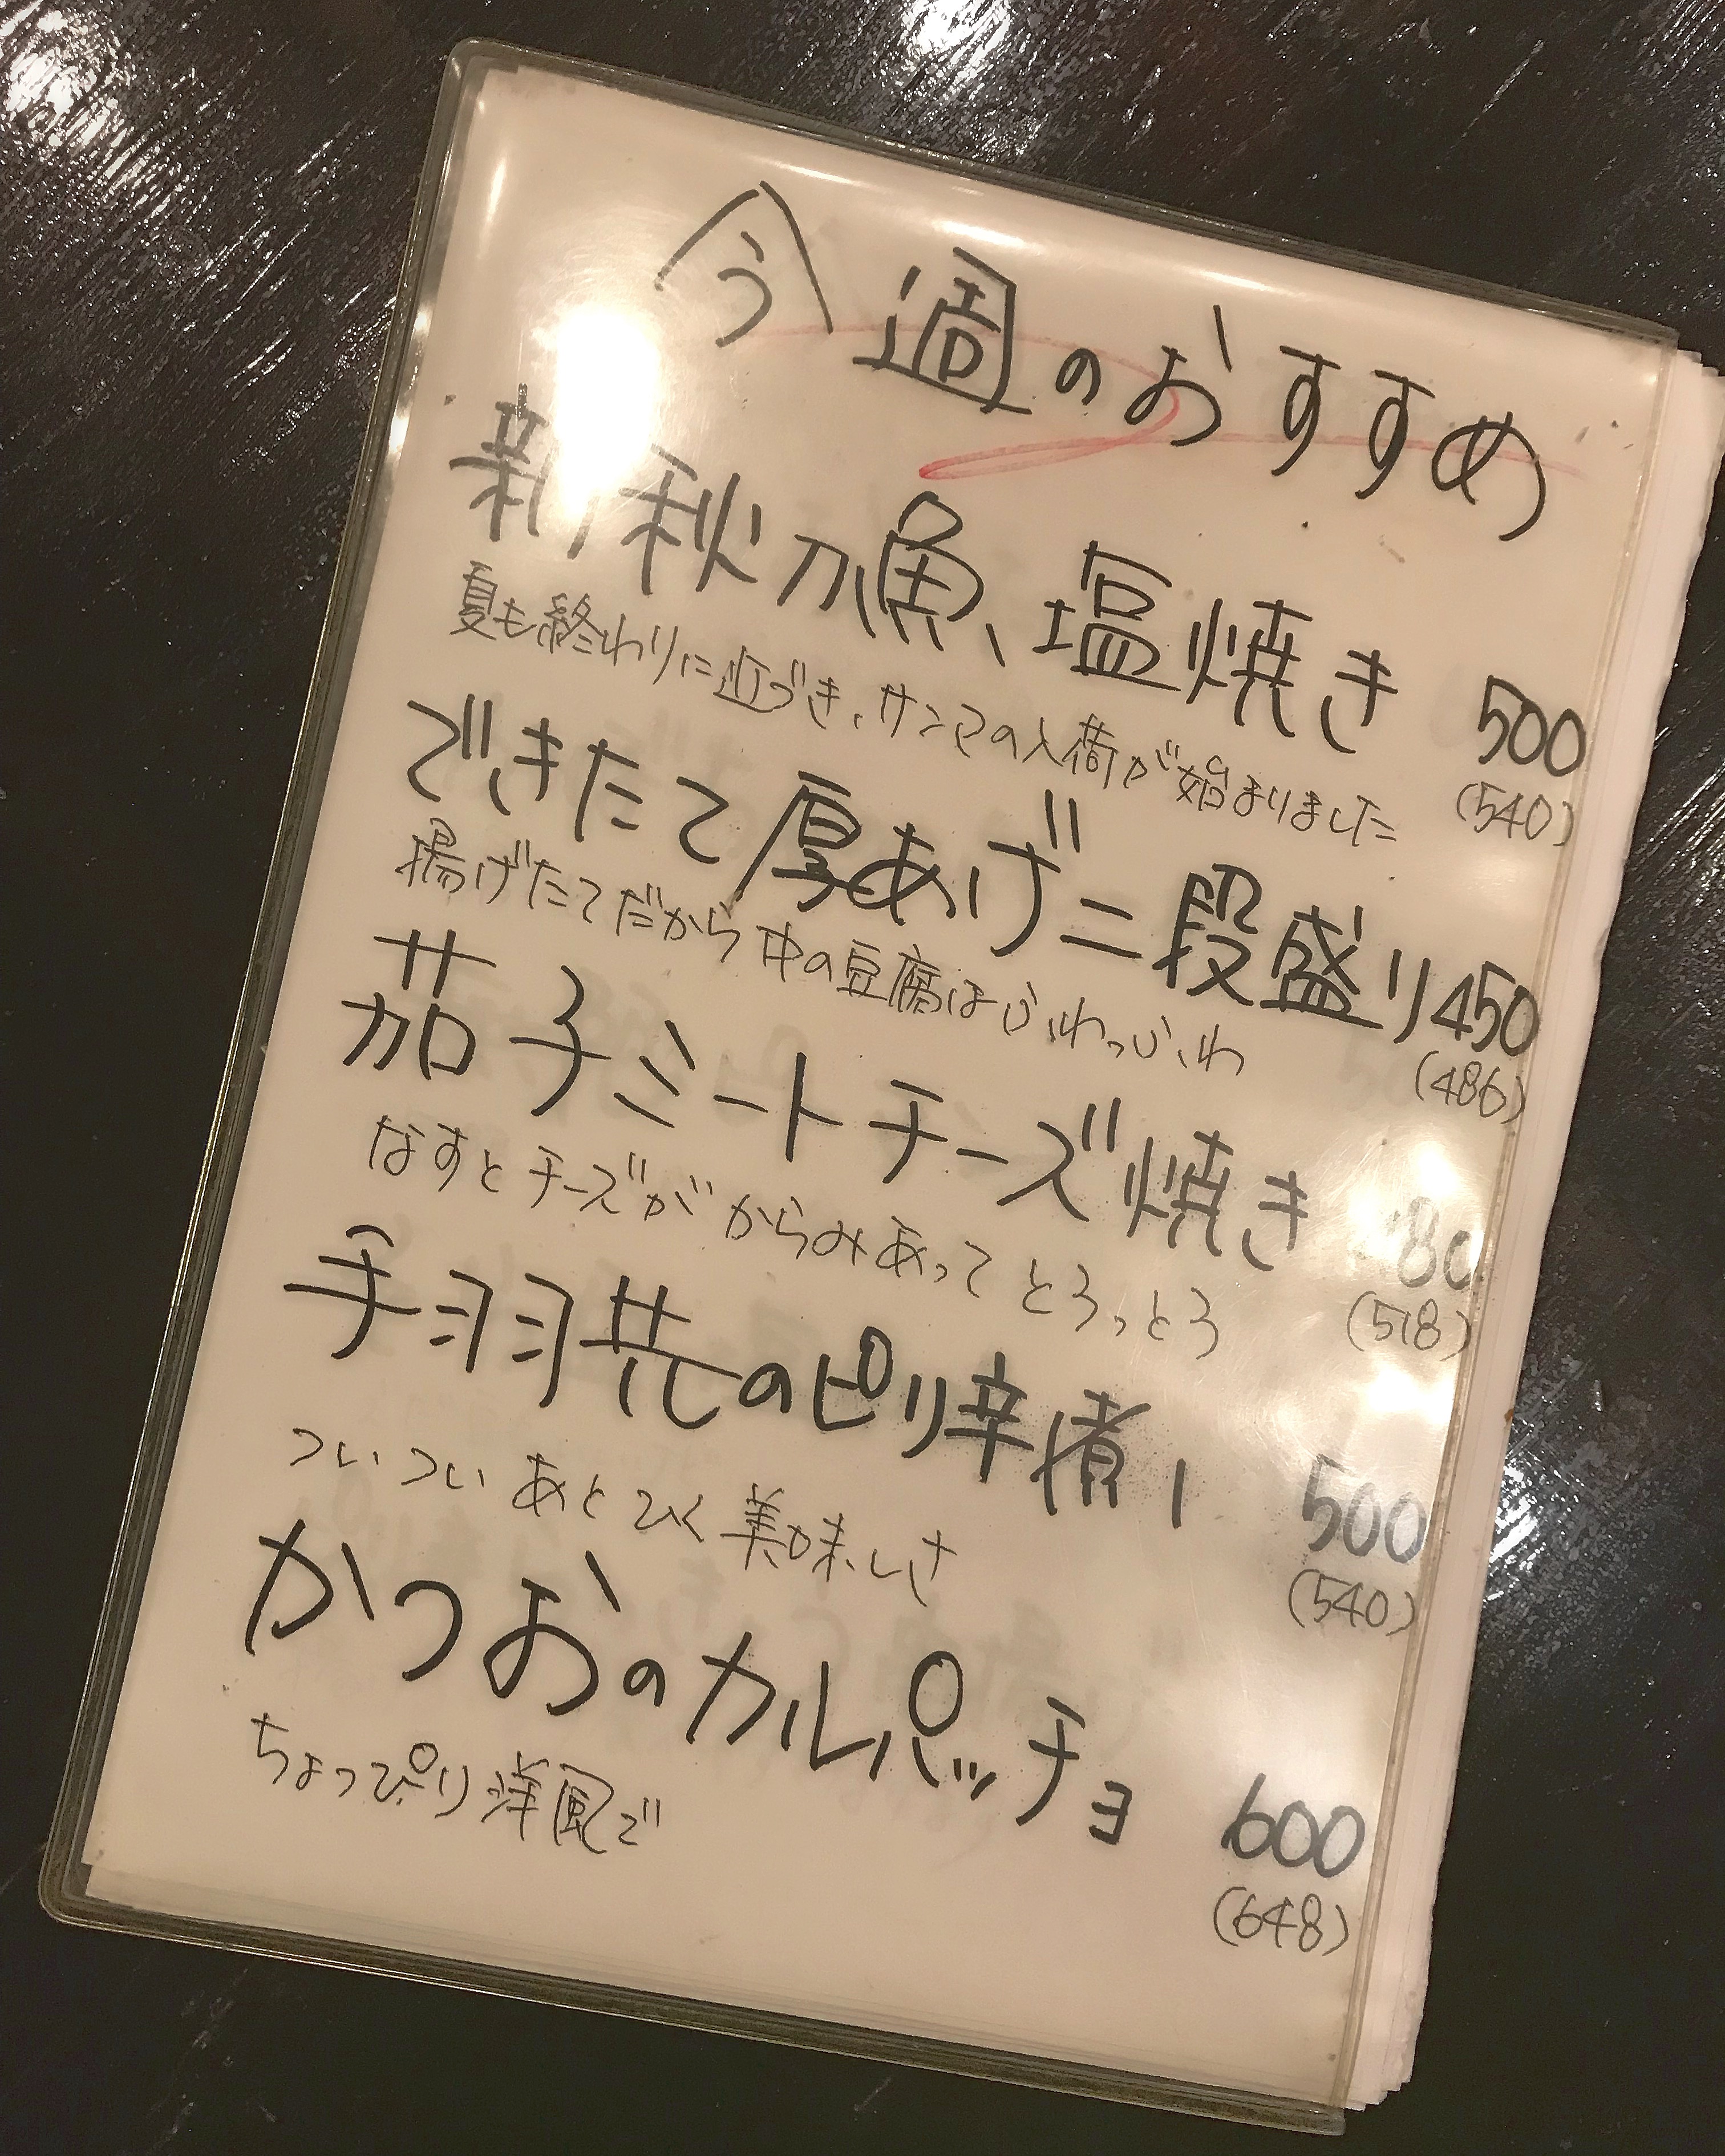 今週のおすすめ
新秋刀魚、塩焼き 500
夏も終わりに近づき、サンマの入荷が始まりました (540)
できたて厚あげ二段盛り 450
揚げたてだから中の豆腐はふわっふわ (486)
茄子ミートチーズ焼き
なすとチーズがからみあってとろっとろ (518)
手羽先のピリ辛煮 500
ついついあとひく美味しさ (540)
かつおのカルパッチョ 600
ちょっぴり洋風で (648)